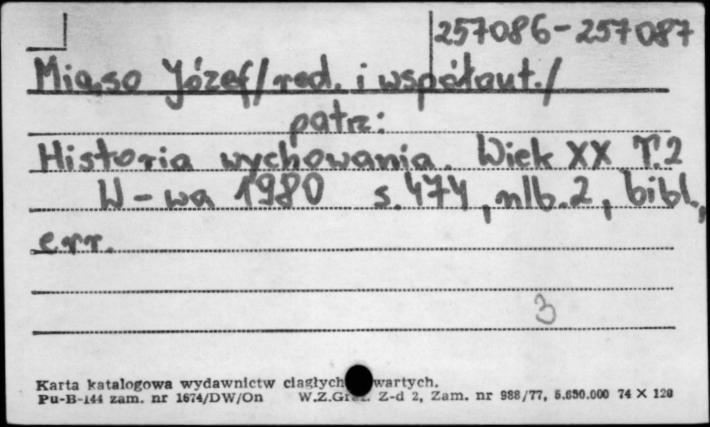 257086-257087
Miąso Józef/red. i współaut./
patrz:
Historia wychowania. Wiek XX T.2
W-wa 1980 s.474, nlb.2, bibl.,
err.
3
Karta katalogowa wydawnictw ciągłych wartych.
Pu-B-144 zam. nr 1674/DW/On W.Z.Gr Z-d 2, Zam. nr 988/77, 5.650.000 74 X 120